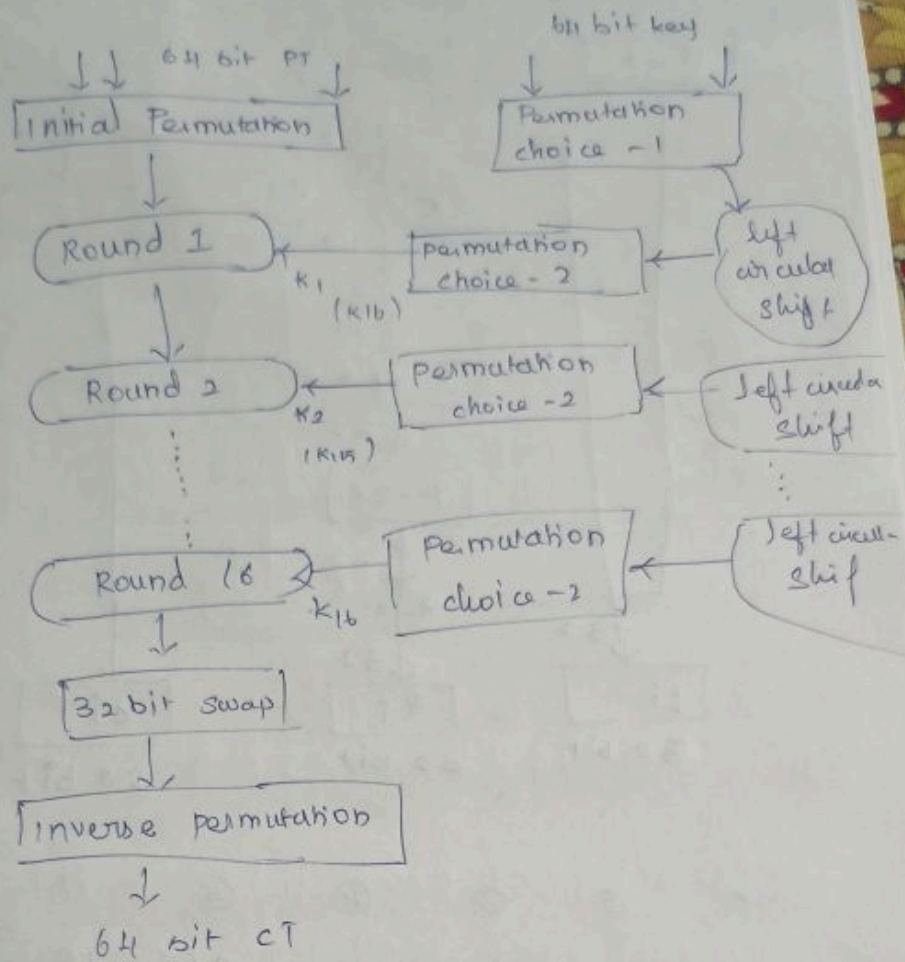 64 bit PT
64 bit key
Initial Permutation
Permutation
choice - 1
Round 1
K1
(K16)
Permutation
choice - 2
left
circular
shift
Round 2
K2
(K15)
Permutation
choice - 2
left circula
shift
Round 16
K16
Permutation
choice - 2
left circul-
shif
32 bit swap
inverse permutation
64 bit CT